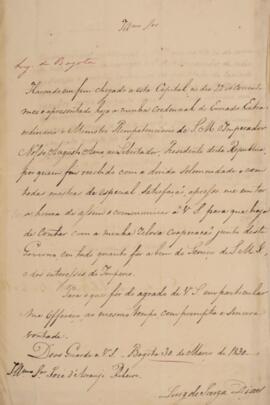 Illmo Snr
Leg. de Bogota
Havendo em fim chegado a esta Capital, no dia 22 do corrente
mez e apresentado hoje a minha credencial de Enviado Extra
ordinario e Ministro Plenipotenciario de S. M. o Imperador
Nosso Augusto Amo ao Libertador, Presidente desta Republica,
por quem fui recebido com a devida solemnidade e com
todas mostras de especial satisfação, apresso me em ter
a honra de assim o communicar a V. S. para que haja
de contar com a minha zelosa cooperação junto deste
Governo em tudo quanto for a bem do Serviço de S. M. I.
e dos interesses do Imperio.
Para o que for do agrado de V. S. em particular
me offereço ao mesmo tempo com prompta e sincera
vontade.
Deos Guarde a V. S. Bogota 30 de Março de 1830.
Illmo Snr José d'Araujo Ribeiro.
Luiz de Souza Dias